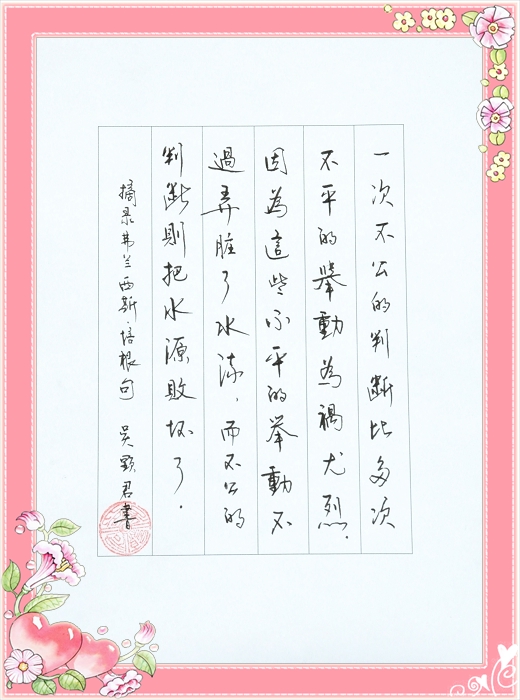 一次不公的判斷比多次
不平的舉動為禍尤烈.
因為這些不平的举動不
過弄脏了水流，而不公的
判断則把水源敗坏了.
摘录弗兰西斯·培根句 吴顆君書